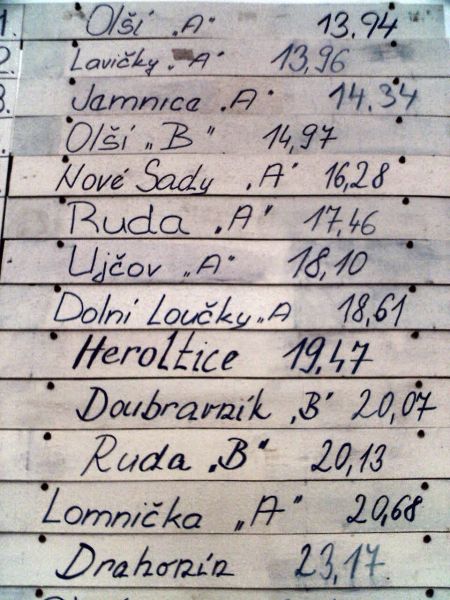 1. Olší „A" 13.94
2. Lavičky „A" 13,96
3. Jamnica „A" 14.34
Olší „B" 14,97
Nové Sady „A" 16,28
Ruda „A" 17,46
Ujčov „A" 18,10
Dolní Loučky „A 18,61
Heroltice 19,47
Doubravník „B" 20,07
Ruda „B" 20,13
Lomnička „A" 20,68
Drahonín 23,17